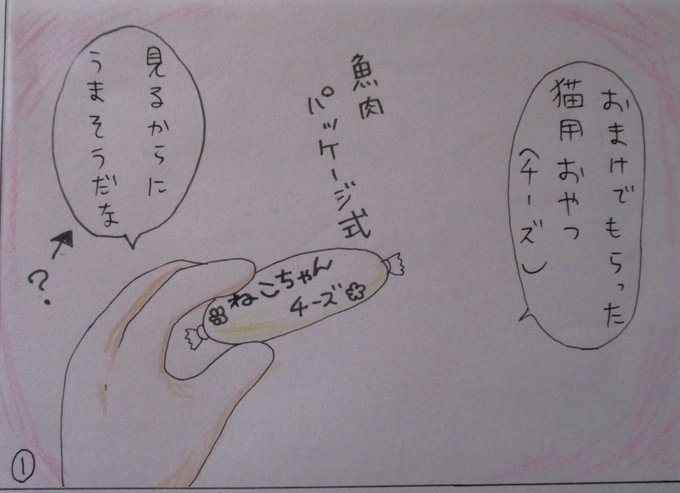 おまけでもらった
猫用おやつ
(チーズ)
魚肉
パッケージ式
ねこちゃん
チーズ
見るからに
うまそうだな
?
①